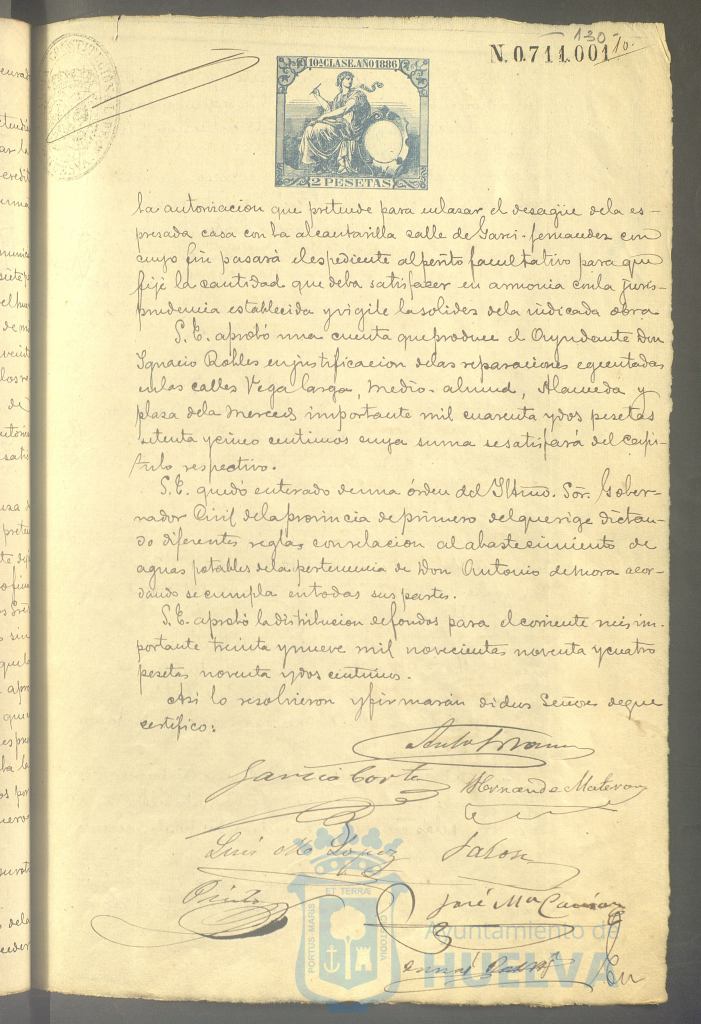 130
10.
N. 0.711.001
10ª CLASE. AÑO 1886
2 PESETAS
la autorizacion que pretende para enlazar el desagüe dela es-
presada casa con la alcantarilla calle de Garci-fernandez con
cuyo fin pasará elespediente alperito facultativo para que
fije la cantidad que deba satisfazer en armonia conla juris-
prudencia establecida yvigile lasolides dela indicada obra
S. E. aprobó una cuenta queproduce el Ayudante Don
Ignacio Robles enjustificacion delas reparaciones egecutadas
enlas calles Vega larga, Medio-almud, Alameda y
plasa dela Merced importante mil cuarenta ydos pesetas
setenta ycinco centimos cuya suma sesatisfará del capi-
tulo respectivo.
S. E. quedó enterado deuna órden del Iltmo. Sór. Gober-
nador Civil delaprovincia deprimero delquerige dictan-
do diferentes reglas conrelacion alabastecimiento de
aguas potables dela pertenencia de Don Antonio deMora acor-
dando secumpla entodas sus partes.
S. E. aprobó ladistribucion defondos para elcorriente mes im-
portante treinta ynueve mil novecientas noventa ycuatro
pesetas noventa ydos centimos.
Asi lo resolvieron yfirmarán dichos Señores deque
certifico:
Garcia Cortes
Hernandez Mateo
Luis Mª Lopez
Jalon
Pinto
José Mª
PORTUS MARIS
ET TERRÆ
CUSTODIA
Ayuntamiento de
HUELVA